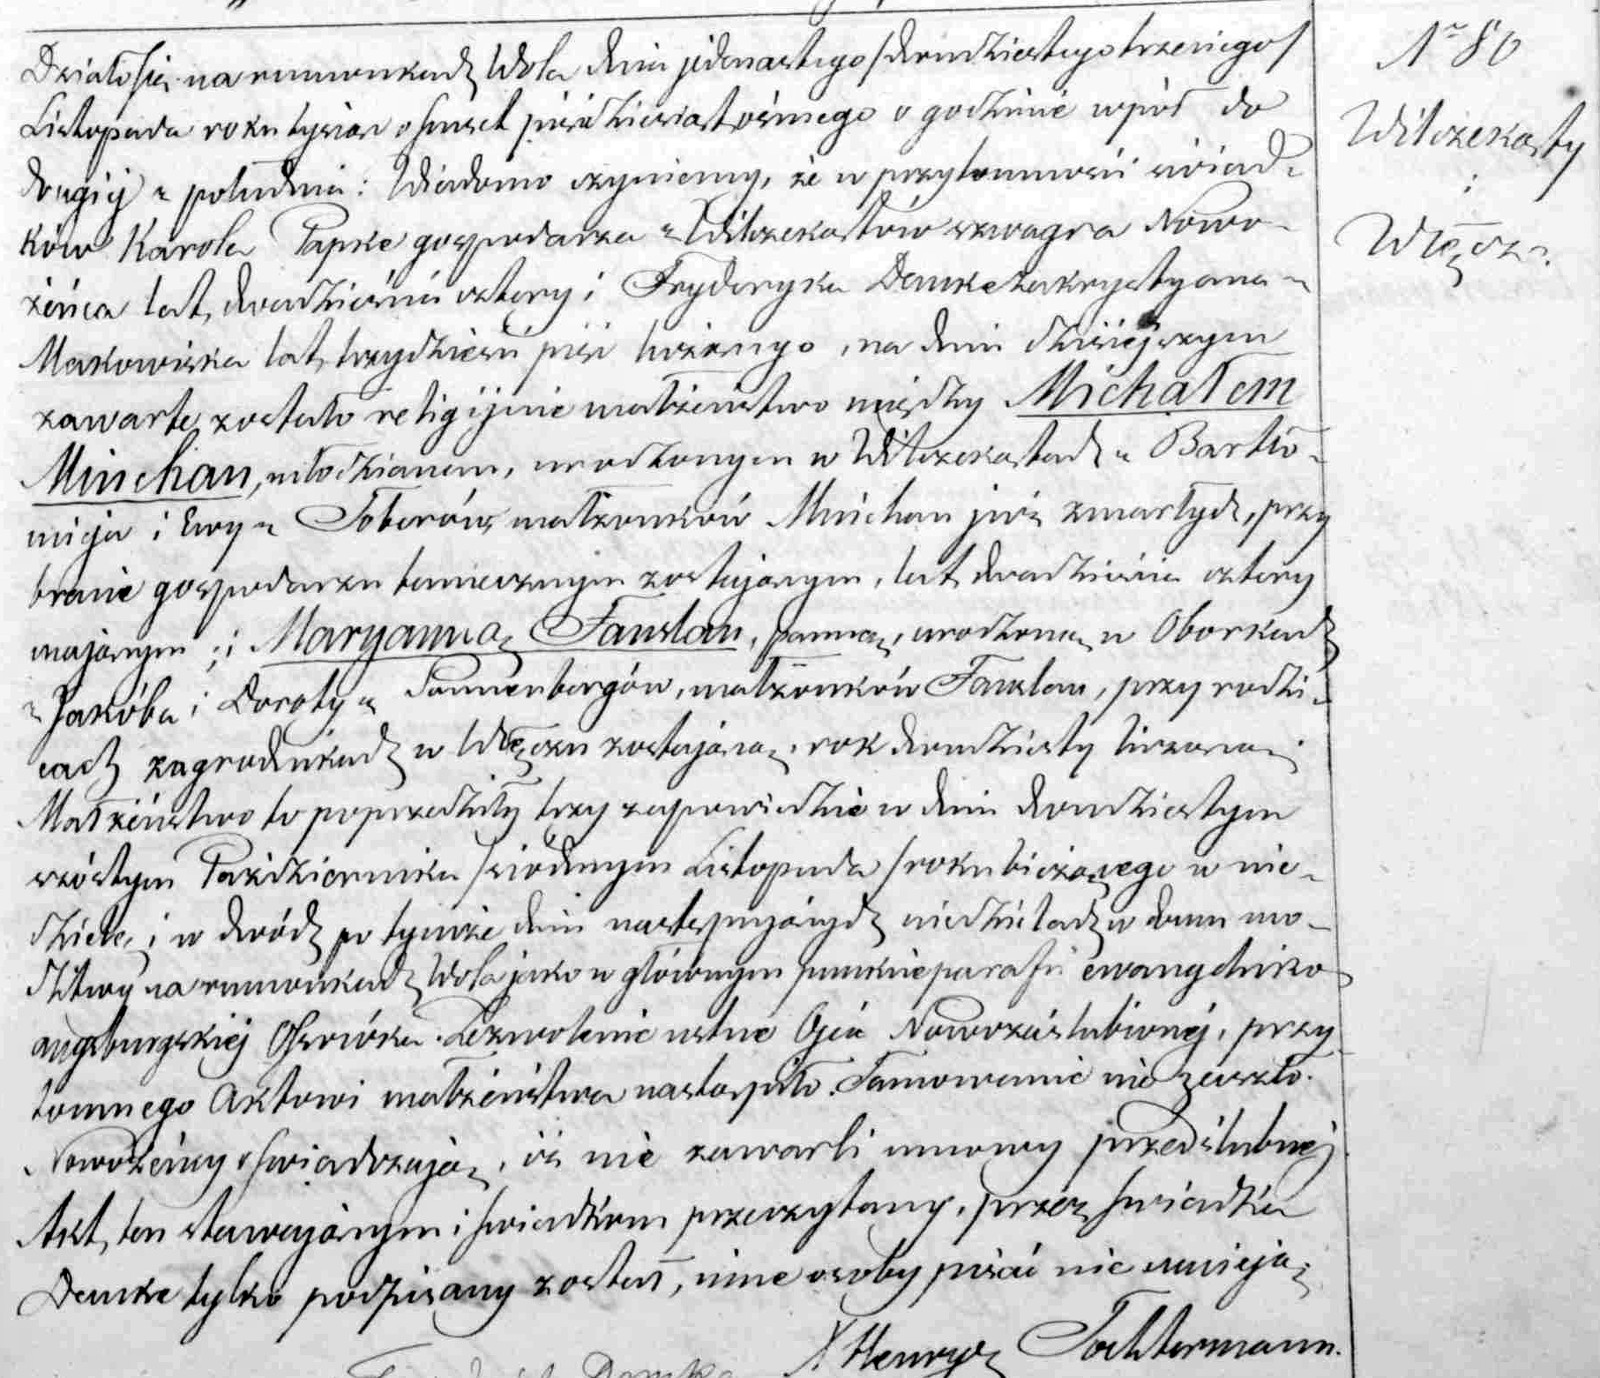 Nr 80
Wilczekąty
i
Więcz.
Działo się na rumunkach Wola dnia jedenastego /dwudziestego trzeciego/
Listopada roku tysiąc ośmset pięćdziesiąt ósmego o godzinie wpół do
drugiej z południa: Wiadomo czyniemy, że w przytomności świad-
ków Karola Papke gospodarza z Wilczekątów szwagra Nowo-
żeńca lat dwadzieścia cztery i Fryderyka Demke zakrystyana z
Makowiska lat trzydzieści pięć liczącego, na dniu dzisiejszym
zawarte zostało religijnie małżeństwo między Michałem
Minchau, młodzianem, urodzonym w Wilczekątach z Bartło-
mieja i Ewy z Toberów, małżonków Minchau już zmarłych, przy
bracie gospodarzu tamecznym zostającym, lat dwadzieścia cztery
mającym; i Maryanną Fanslau, panną, urodzoną w Oborkach
z Jakóba i Doroty z Sonnenbergów, małżonków Fanslau, przy rodzi-
cach zagrodnikach w Więczu zostającą, rok dwudziesty liczącą.
Małżeństwo to poprzedziły trzy zapowiedzie w dniu dwudziestym
szóstym Października /siódmym Listopada/ roku bieżącego w nie-
dzielę, i w dwóch po tymże dniu następujących niedzielach w domu mo-
dlitwy na rumunkach Wola jako w głównym punkcie parafii ewangelicko
augsburgskiej Ossówka. Zezwolenie ustne Ojca Nowozaślubionej, przy-
tomnego Aktowi małżeństwa nastąpiło. Tamowanie nie zaszło.
Nowożeńcy oświadczają, iż nie zawarli umowy przedślubnej
Akt ten stawającym i świadkom przeczytany, przez świadka
Demke tylko podpisany został, inne osoby pisać nie umieją.
X Henryk Tochtermann.